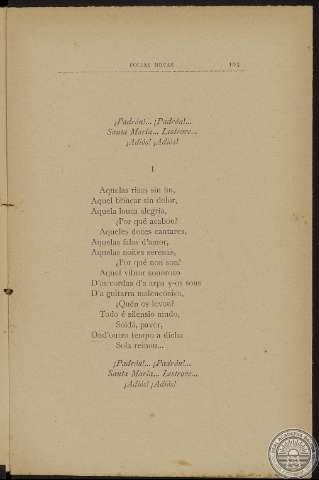 FOLLAS NOVAS 103
¡Padrón!... ¡Padrón!...
Santa María... Lestrove...
¡Adiós! ¡Adiós!
I
Aquelas risas sin fin,
Aquel brincar sin delor,
Aquela louca alegría,
¿Por qué acabou?
Aqueles doces cantares,
Aquelas falas d'amor,
Aquelas noites serenas,
¿Por qué non son?
Aquel vibrar sonoroso
D'as cordas d'a arpa y-os sons
D'a guitarra malencónica,
¿Quén os levou?
Todo é silensio mudo,
Soidá, pavor,
Ond'outro tempo a dicha
Sola reinou...
¡Padrón!... ¡Padrón!...
Santa María... Lestrove...
¡Adiós! ¡Adiós!